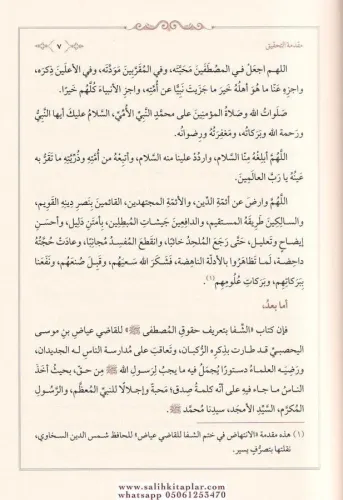 مقدمة التحقيق
٧
اللهم اجعلْ في المصْطَفَينَ مَحَبَّتَه، وفي المُقَرَّبينَ مَوَدَّتَه، وفي الأعلَينَ ذِكرَه،
واجزِه عَنّا ما هُوَ أهلُه خَيرَ ما جَزَيتَ نَبِيًّا عن أُمَّتِه، واجزِ الأنبياءَ كُلَّهُم خَيرًا.
صَلَواتُ اللهِ وصَلاةُ المؤمنِينَ على محمَّدٍ النَّبيِّ الأُمِّيِّ، السَّلامُ عليكَ أيها النَّبيُّ
ورحمة الله وبَركاتُه، ومَغفِرَتُه ورِضوانُه.
اللَّهُمَّ أبلِغْهُ مِنّا السَّلام، واردُدْ علينا منه السَّلام، وأتبِعْهُ من أُمَّتِه وذُرِّيَّتِه ما تَقَرُّ به
عَينُهُ يا رَبَّ العالمِين.
اللَّهُمَّ وارضَ عن أئمَّةِ الدِّين، والأئمَّةِ المجتهدين، القائمينَ بِنَصرِ دينِه القَويم،
والسالِكِينَ طَرِيقَهُ المستقيم، والدافِعِينَ جَيشاتِ المُبطِلِين، بأمتَنِ دَليل، وأحسَنِ
إيضاحٍ وتَعليل، حَتَّى رَجَعَ المُلحِدُ خائبًا، وانقَطَعَ المُفسِدُ مُجانِبًا، وعادَتْ حُجَّتُهُ
داحِضة، لَمّا تَظاهَرُوا بالأدلَّة الناهِضة، فَشَكَرَ اللهُ سَعيَهُم، وقَبِلَ صُنعَهُم، ونَفَعَنا
بِبَركاتِهِم، وبَركاتِ عُلُومِهِم(١).
أما بعدُ،
فإن كتاب «الشِّفا بتعريف حقوقِ المُصطفى ﷺ» للقاضي عياضِ بنِ موسى
اليحصبيِّ قد طارت بذِكرِه الرُّكبان، وتَعاقَبَ على مُدارَسةِ الناسِ له الجديدان،
ورَضِيَه العلماءُ دستورًا يُجمَلُ فيه ما يجبُ لِرسولِ الله ﷺ مِن حق، بحيثُ أخَذَ
الناسُ ما جاء فيه على أنه كلمةُ صِدق؛ مَحبةً وإجلالًا للنبيِّ المُعظَّم، والرَّسُولِ
المُكرَّم، السَّيِّدِ الأمجَد، سيدِنا مُحمَّدٍ ﷺ.
(١) هذه مقدمة «الانتهاض في ختم الشفا للقاضي عياض» للحافظ شمس الدين السخاوي،
نقلتها بتصرُّفٍ يسير.
www.salihkitaplar.com
whatsapp 05061253470